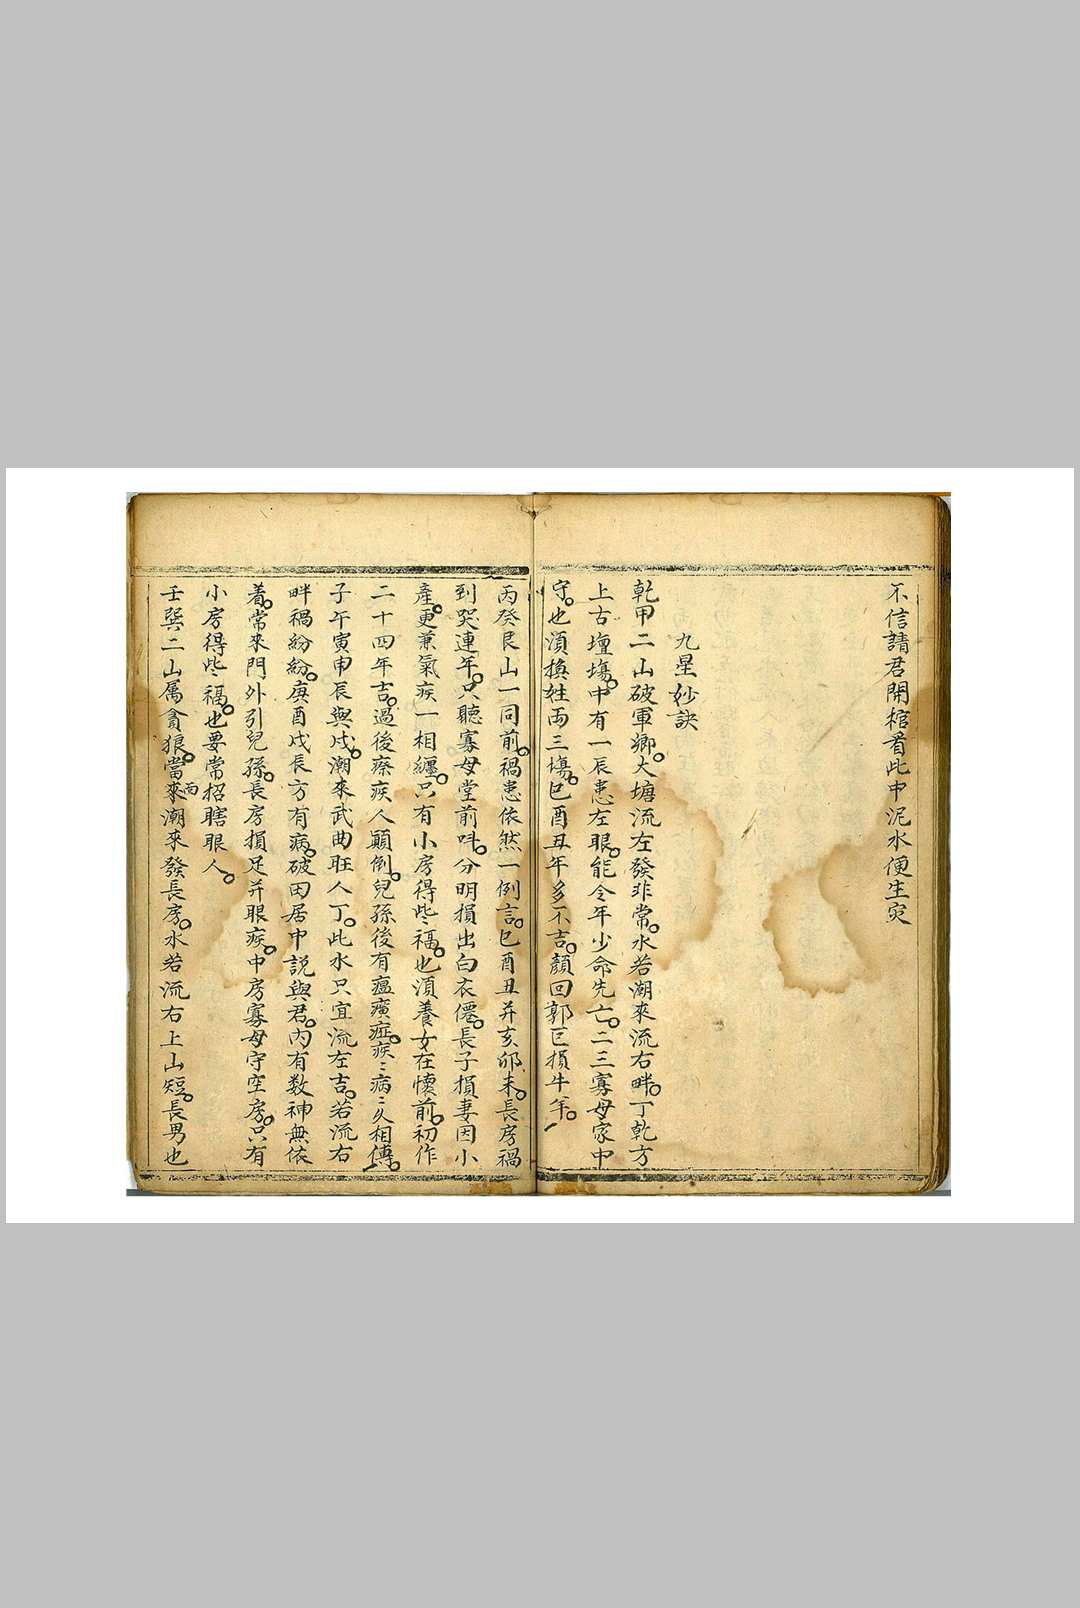 不信請君開棺看此中泥水便生灾
九星妙訣
乾甲二山破軍鄉。大塘流左發非常。水若潮來流右畔。丁乾方
上古壇塲。中有一辰患左眼。能令年少命先亡。二三寡母家中
守。也湏換姓両三塲。巳酉丑年多不吉。顏回郭巨損牛羊。
丙癸艮山一同前。禍患依然一例言。巳酉丑并亥卯未。長房禍
到哭連年。只聽寡母堂前呌。分明損出白衣僊。長子損妻因小
產。更兼氣疾一相纏。只有小房得些福。也湏養女在懷前。初作
二十四年吉。過後瘵疾人顚倒。兒孫後有瘟𤺺症。疾〻病〻久相傳。
子午寅申辰與戌。潮來武曲旺人丁。此水只宜流左吉。若流右
畔禍紛紛。庚酉戌長方有病。破田居中説與君。内有数神無依
着。常來門外引兒孫。長房損足并眼疾。中房寡母守空房。只有
小房得些福。也要常招瞎眼人。
壬巽二山属貪狼。當丙來潮來發長房。水若流右上山短。長男也